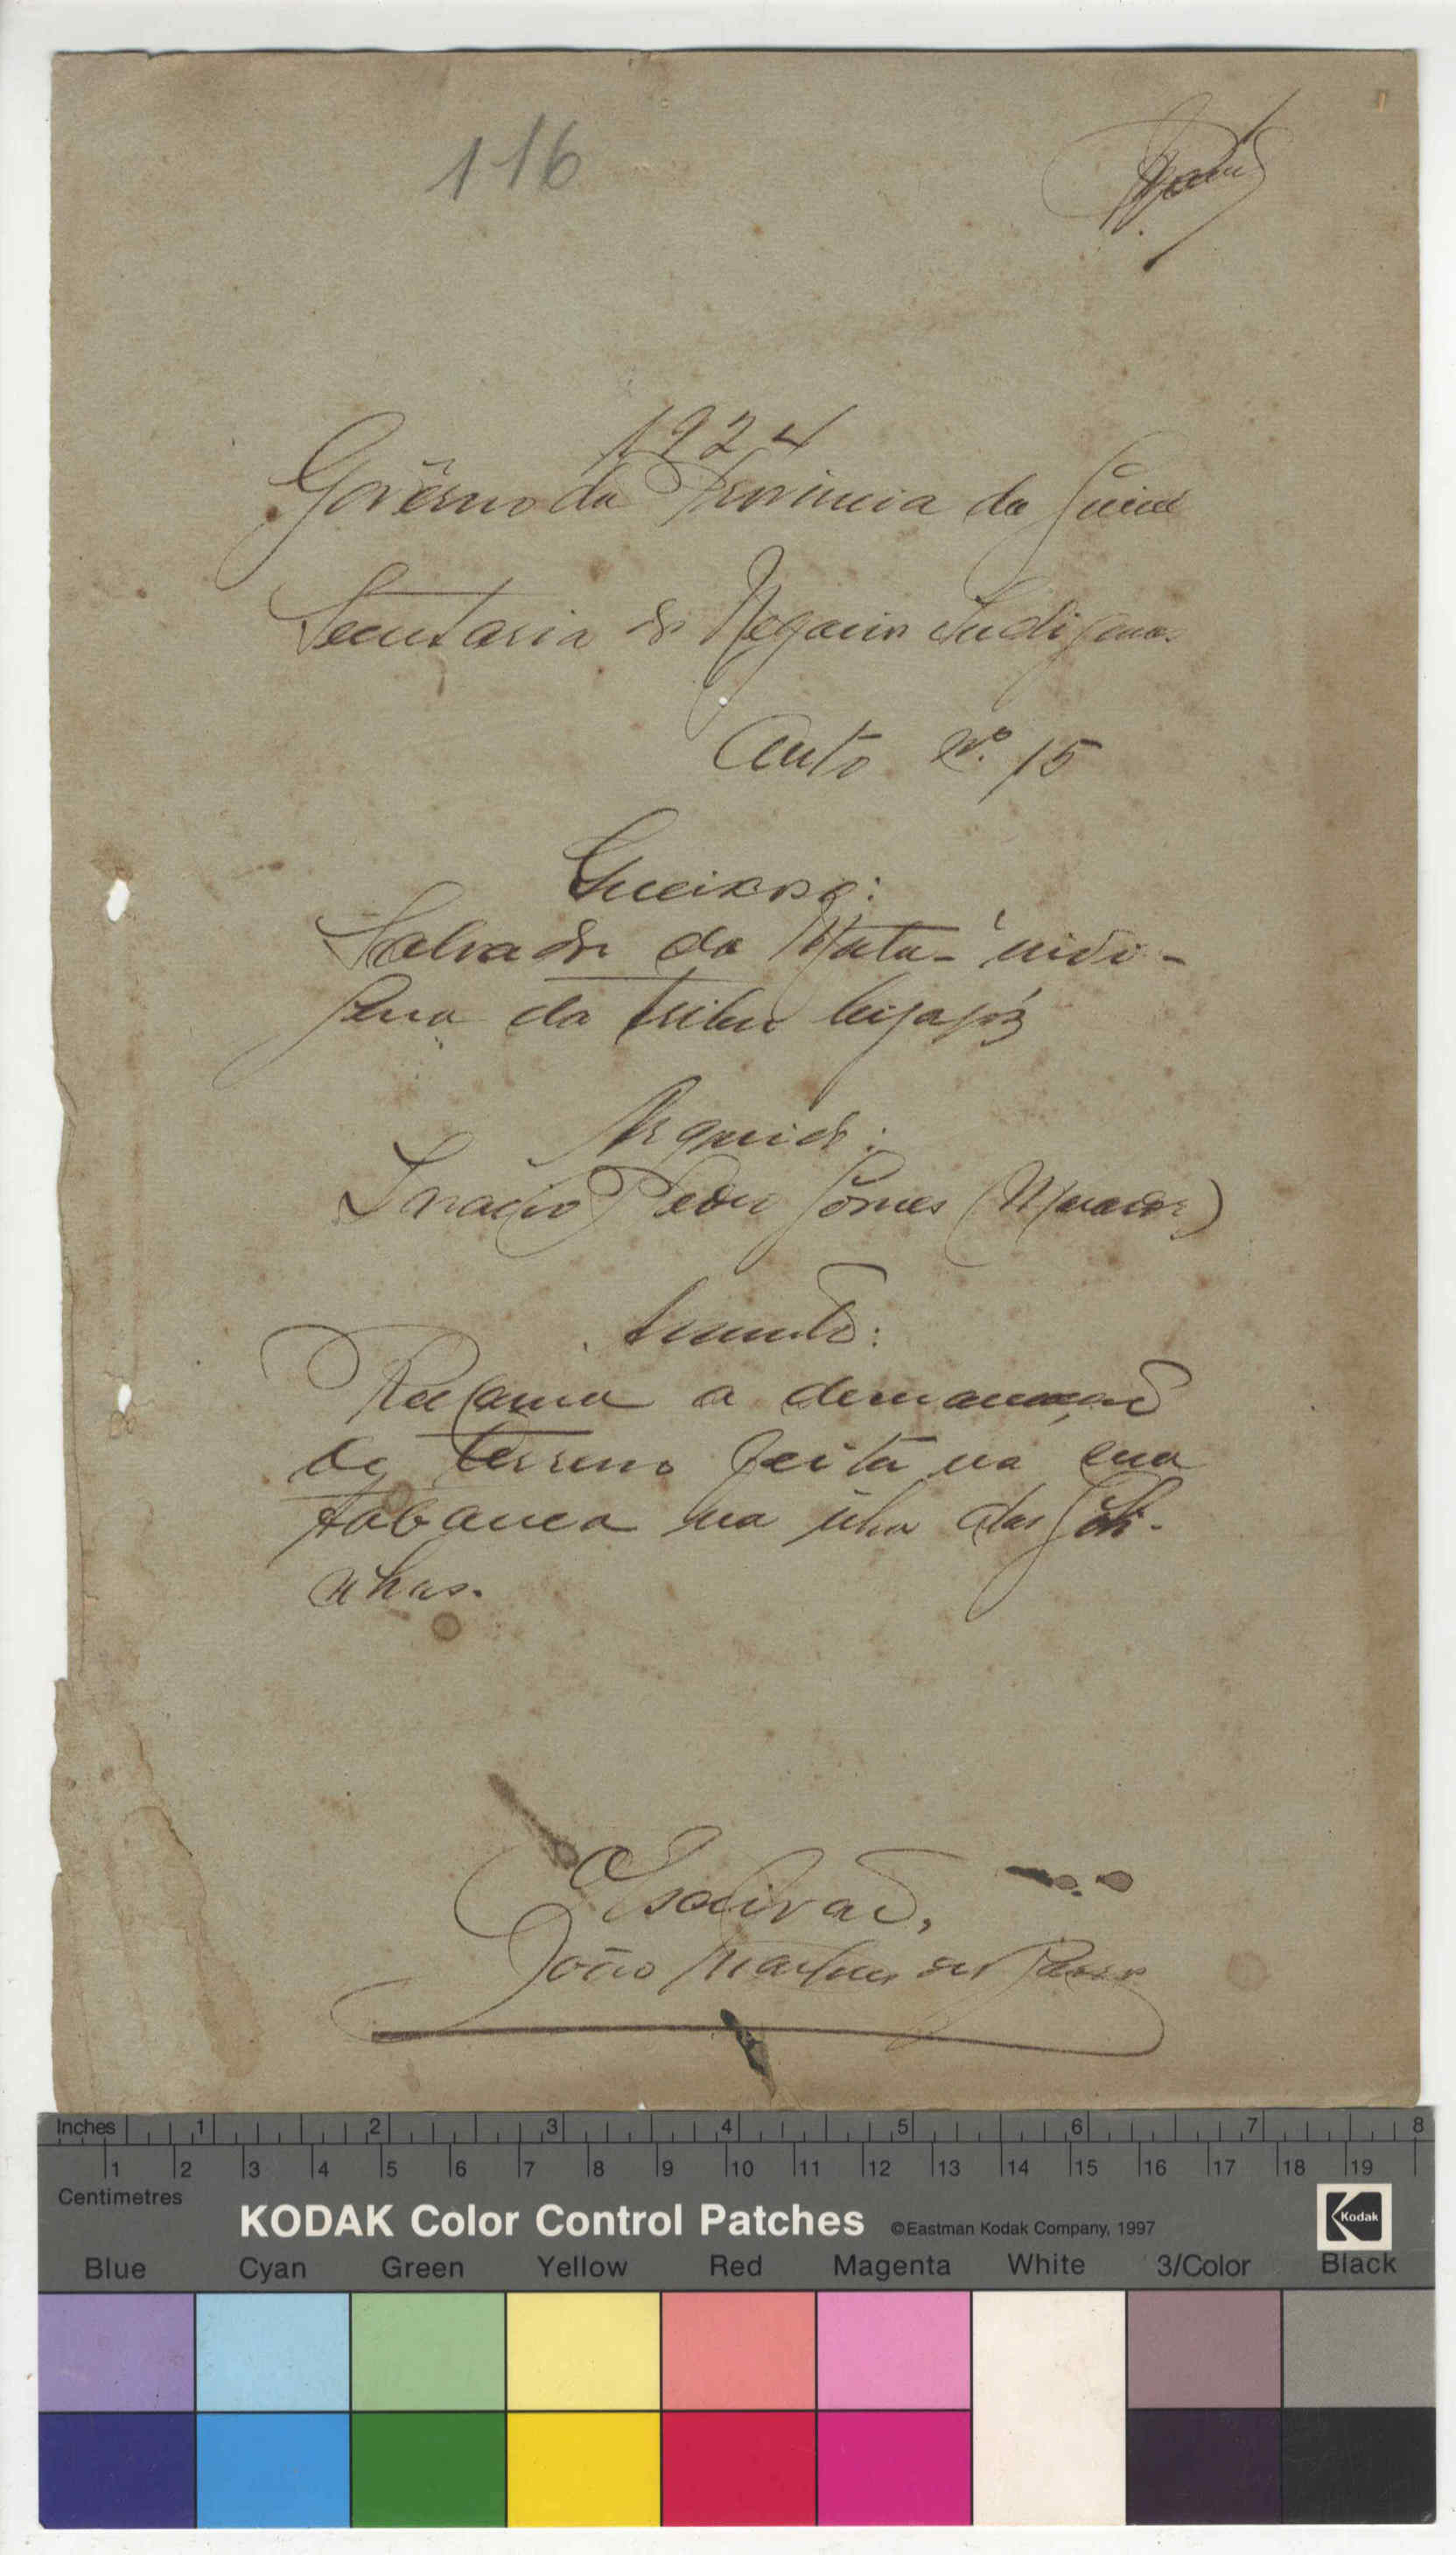 116
1924
Govêrno da Provincia da Guiné
Secretaria dos Negocios Indigenas
Auto Nº. 15
Queixoso:
Salvador da Mata - indi-
gena da tribu bijagóz
Arguido:
Inacio Pedro Gomes (Mancar)
Assunto:
Reclama a demarcação
de terreno feita na sua
tabanca na ilha das Gali-
nhas.
O Escrivão,
João Martins
Inches 1 2 3 4 5 6 7 8
1 2 3 4 5 6 7 8 9 10 11 12 13 14 15 16 17 18 19
Centimetres
KODAK Color Control Patches ©Eastman Kodak Company, 1997 Kodak
Blue Cyan Green Yellow Red Magenta White 3/Color Black